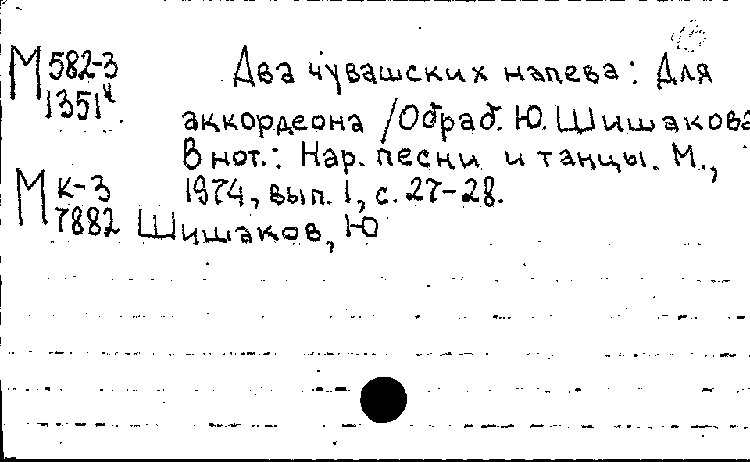 М 582-3 Два чувашских напева: Для
1351ч аккордеона /Обраб. Ю. Шишакова
В нот.: Нар. песни и танцы. М.,
М К-3 1974, вып. 1, с. 27-28.
7882 Шишаков, Ю